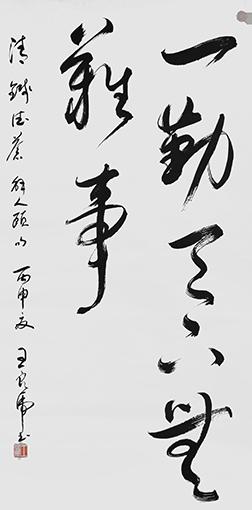 一勤天下無
難事
清錢德蒼解人頤句 丙申夏 王良虎書